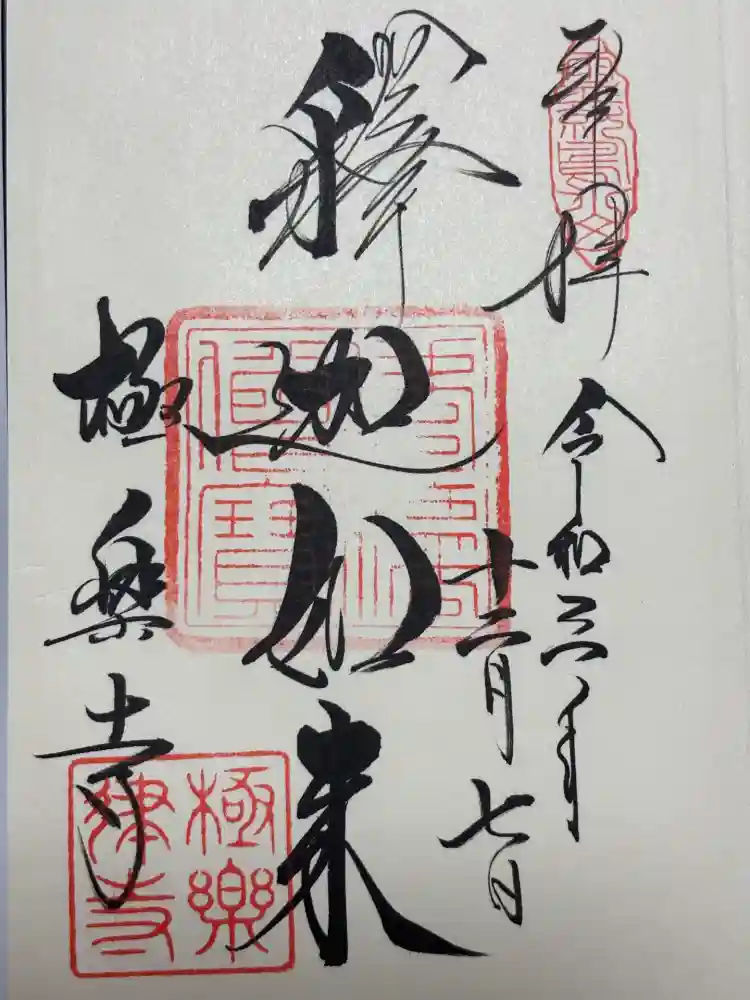 奉拝
令和三年
十二月七日
釋迦如来
極楽寺
極樂
律寺